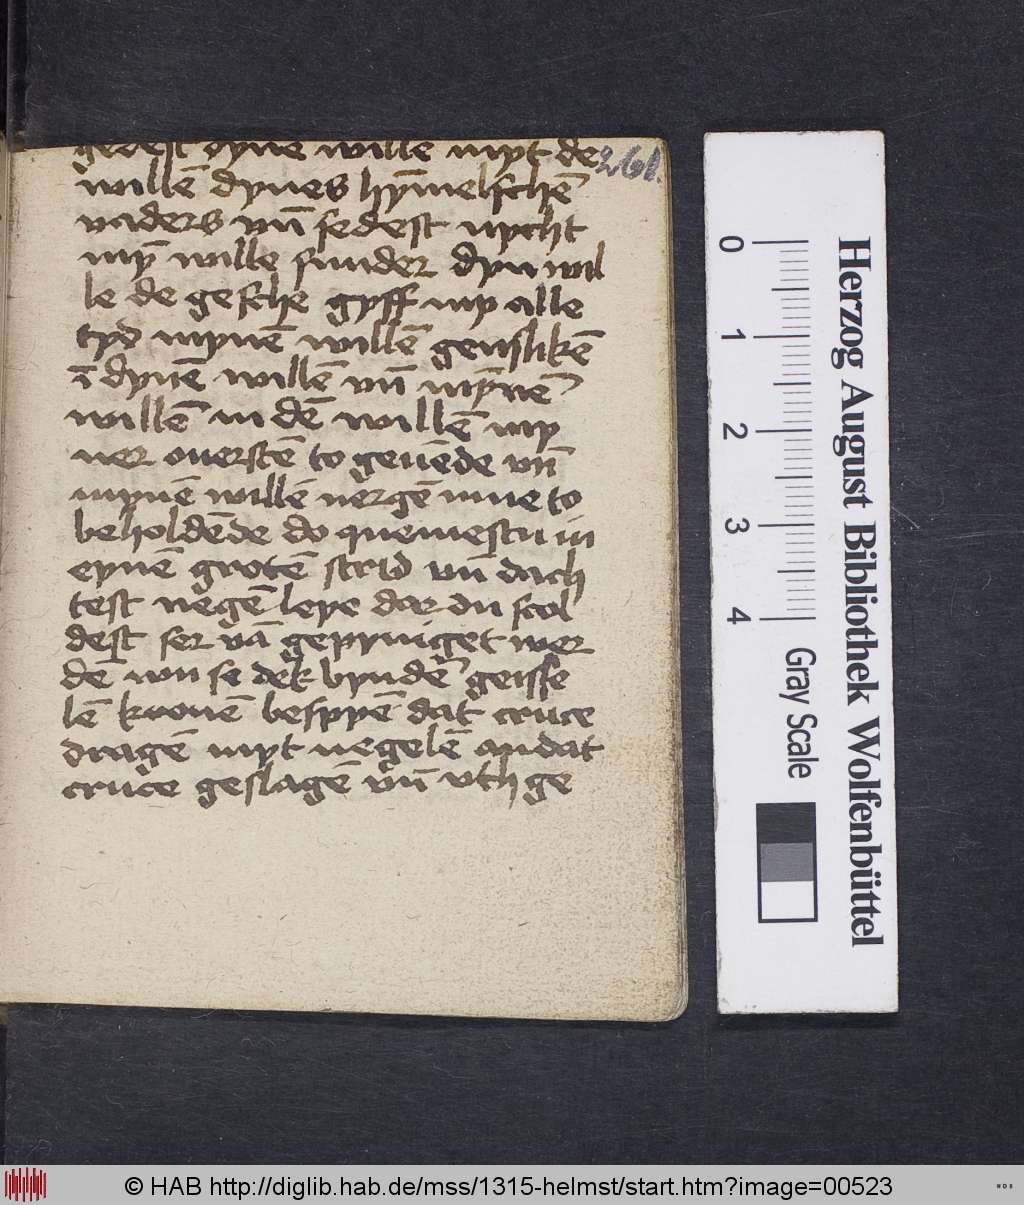 gedest dyne wille myt de
261.
willē dynes hȳmelschē
vaders vn̄ sedest nycht
mȳ wille sunder dyn wil
le de gesche gyff my alle
tyd mynē willē gensliken̄
ī dynē willē vn̄ mȳnē
willē in dē willē my
ner ouerstē to geuēde vn̄
mynē willē nergē īne to
beholdēde do quemestu in
eynē grotē strid vn̄ dach
test negē leye dar du scol
dest ser vā gepyniget wer
dē wu se dek byndē geisse
lē kronē bespyē dat cruce
dragē myt negelē an dat
cruce geslagē vn̄ vth ge
Herzog August Bibliothek Wolfenbüttel
0 1 2 3 4
Gray Scale
© HAB http://diglib.hab.de/mss/1315-helmst/start.htm?image=00523